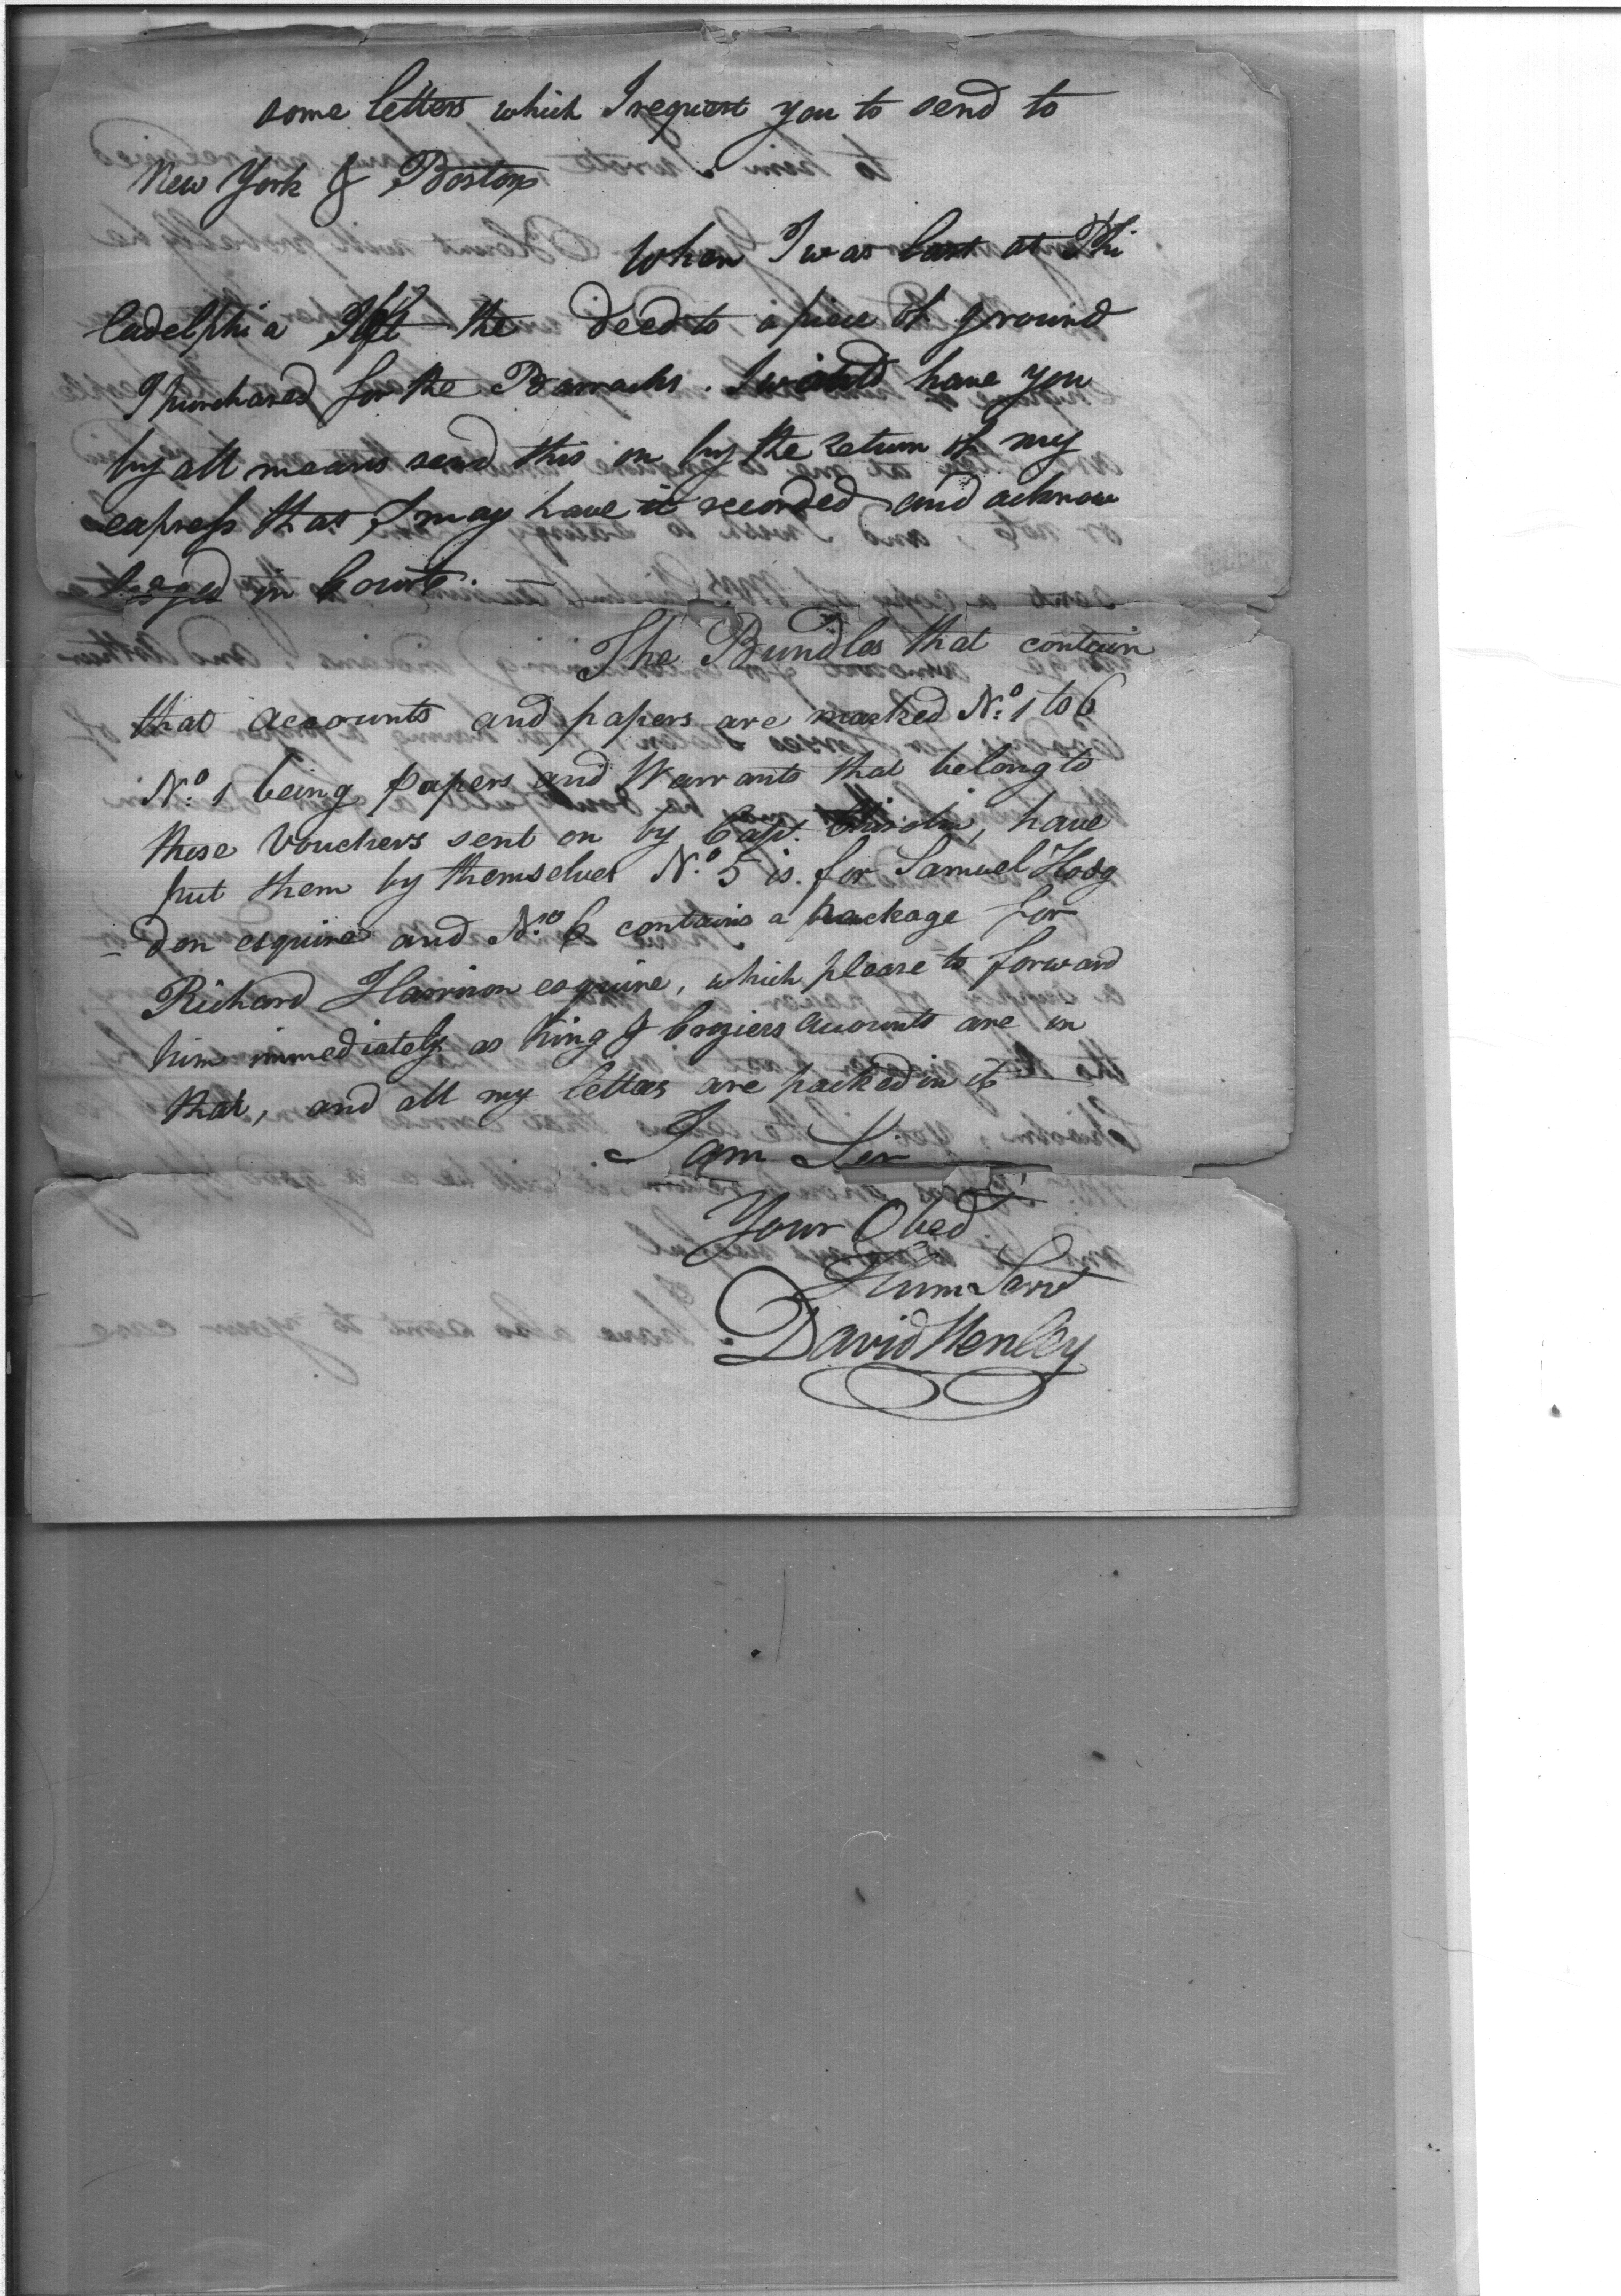 some letters which I request you to send to
New York & Boston
When I was last at Phi
ladelphia I left the deed to a piece of ground
I purchased for the Barracks. I would have you
by all means send this on by the return of my
express that I may have it recorded and acknow
ledged in Court.
The Bundles that contain
that accounts and papers are marked No. 1 to 6
No. 1 being papers and Warrants that belong to
these Vouchers sent on by Capt. Chisolm, have
put them by themselves No. 5 is for Samuel Hodg
-don esquire and No. 6 contains a package for
Richard Harrison esquire, which please to forward
him immediately as King & Croziers accounts are in
that, and all my letters are packed in it
I am Sir
Your Obed
Hum Servt
David Henley